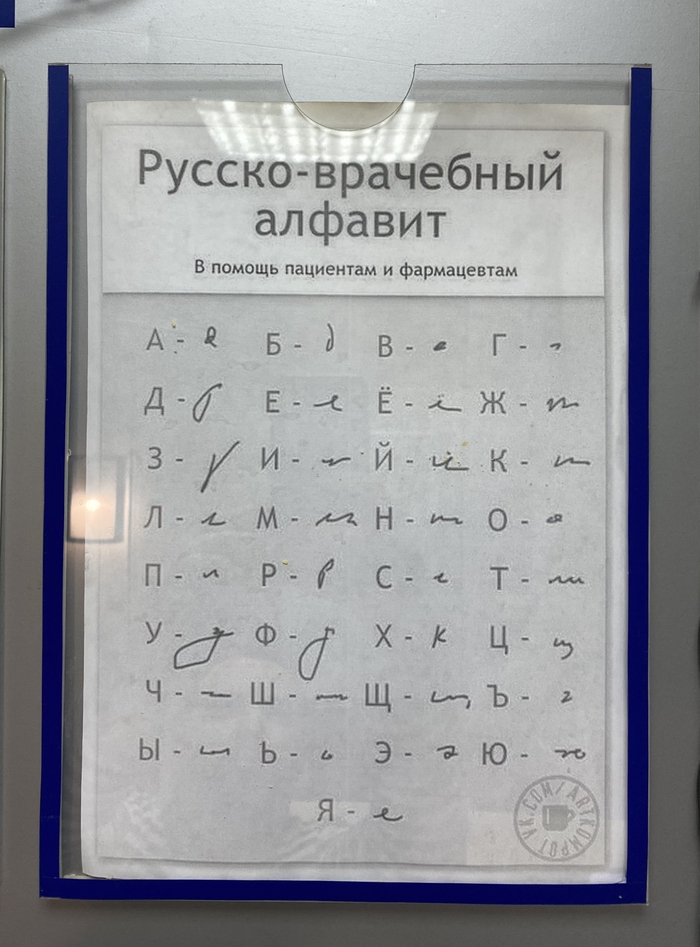 Русско-врачебный
алфавит
В помощь пациентам и фармацевтам
А - Б - В - Г -
Д - Е - Ё - Ж -
З - И - Й - К -
Л - М - Н - О -
П - Р - С - Т -
У - Ф - Х - Ц -
Ч - Ш - Щ - Ъ -
Ы - Ь - Э - Ю -
Я -
VK.COM/ARTKOMPOT